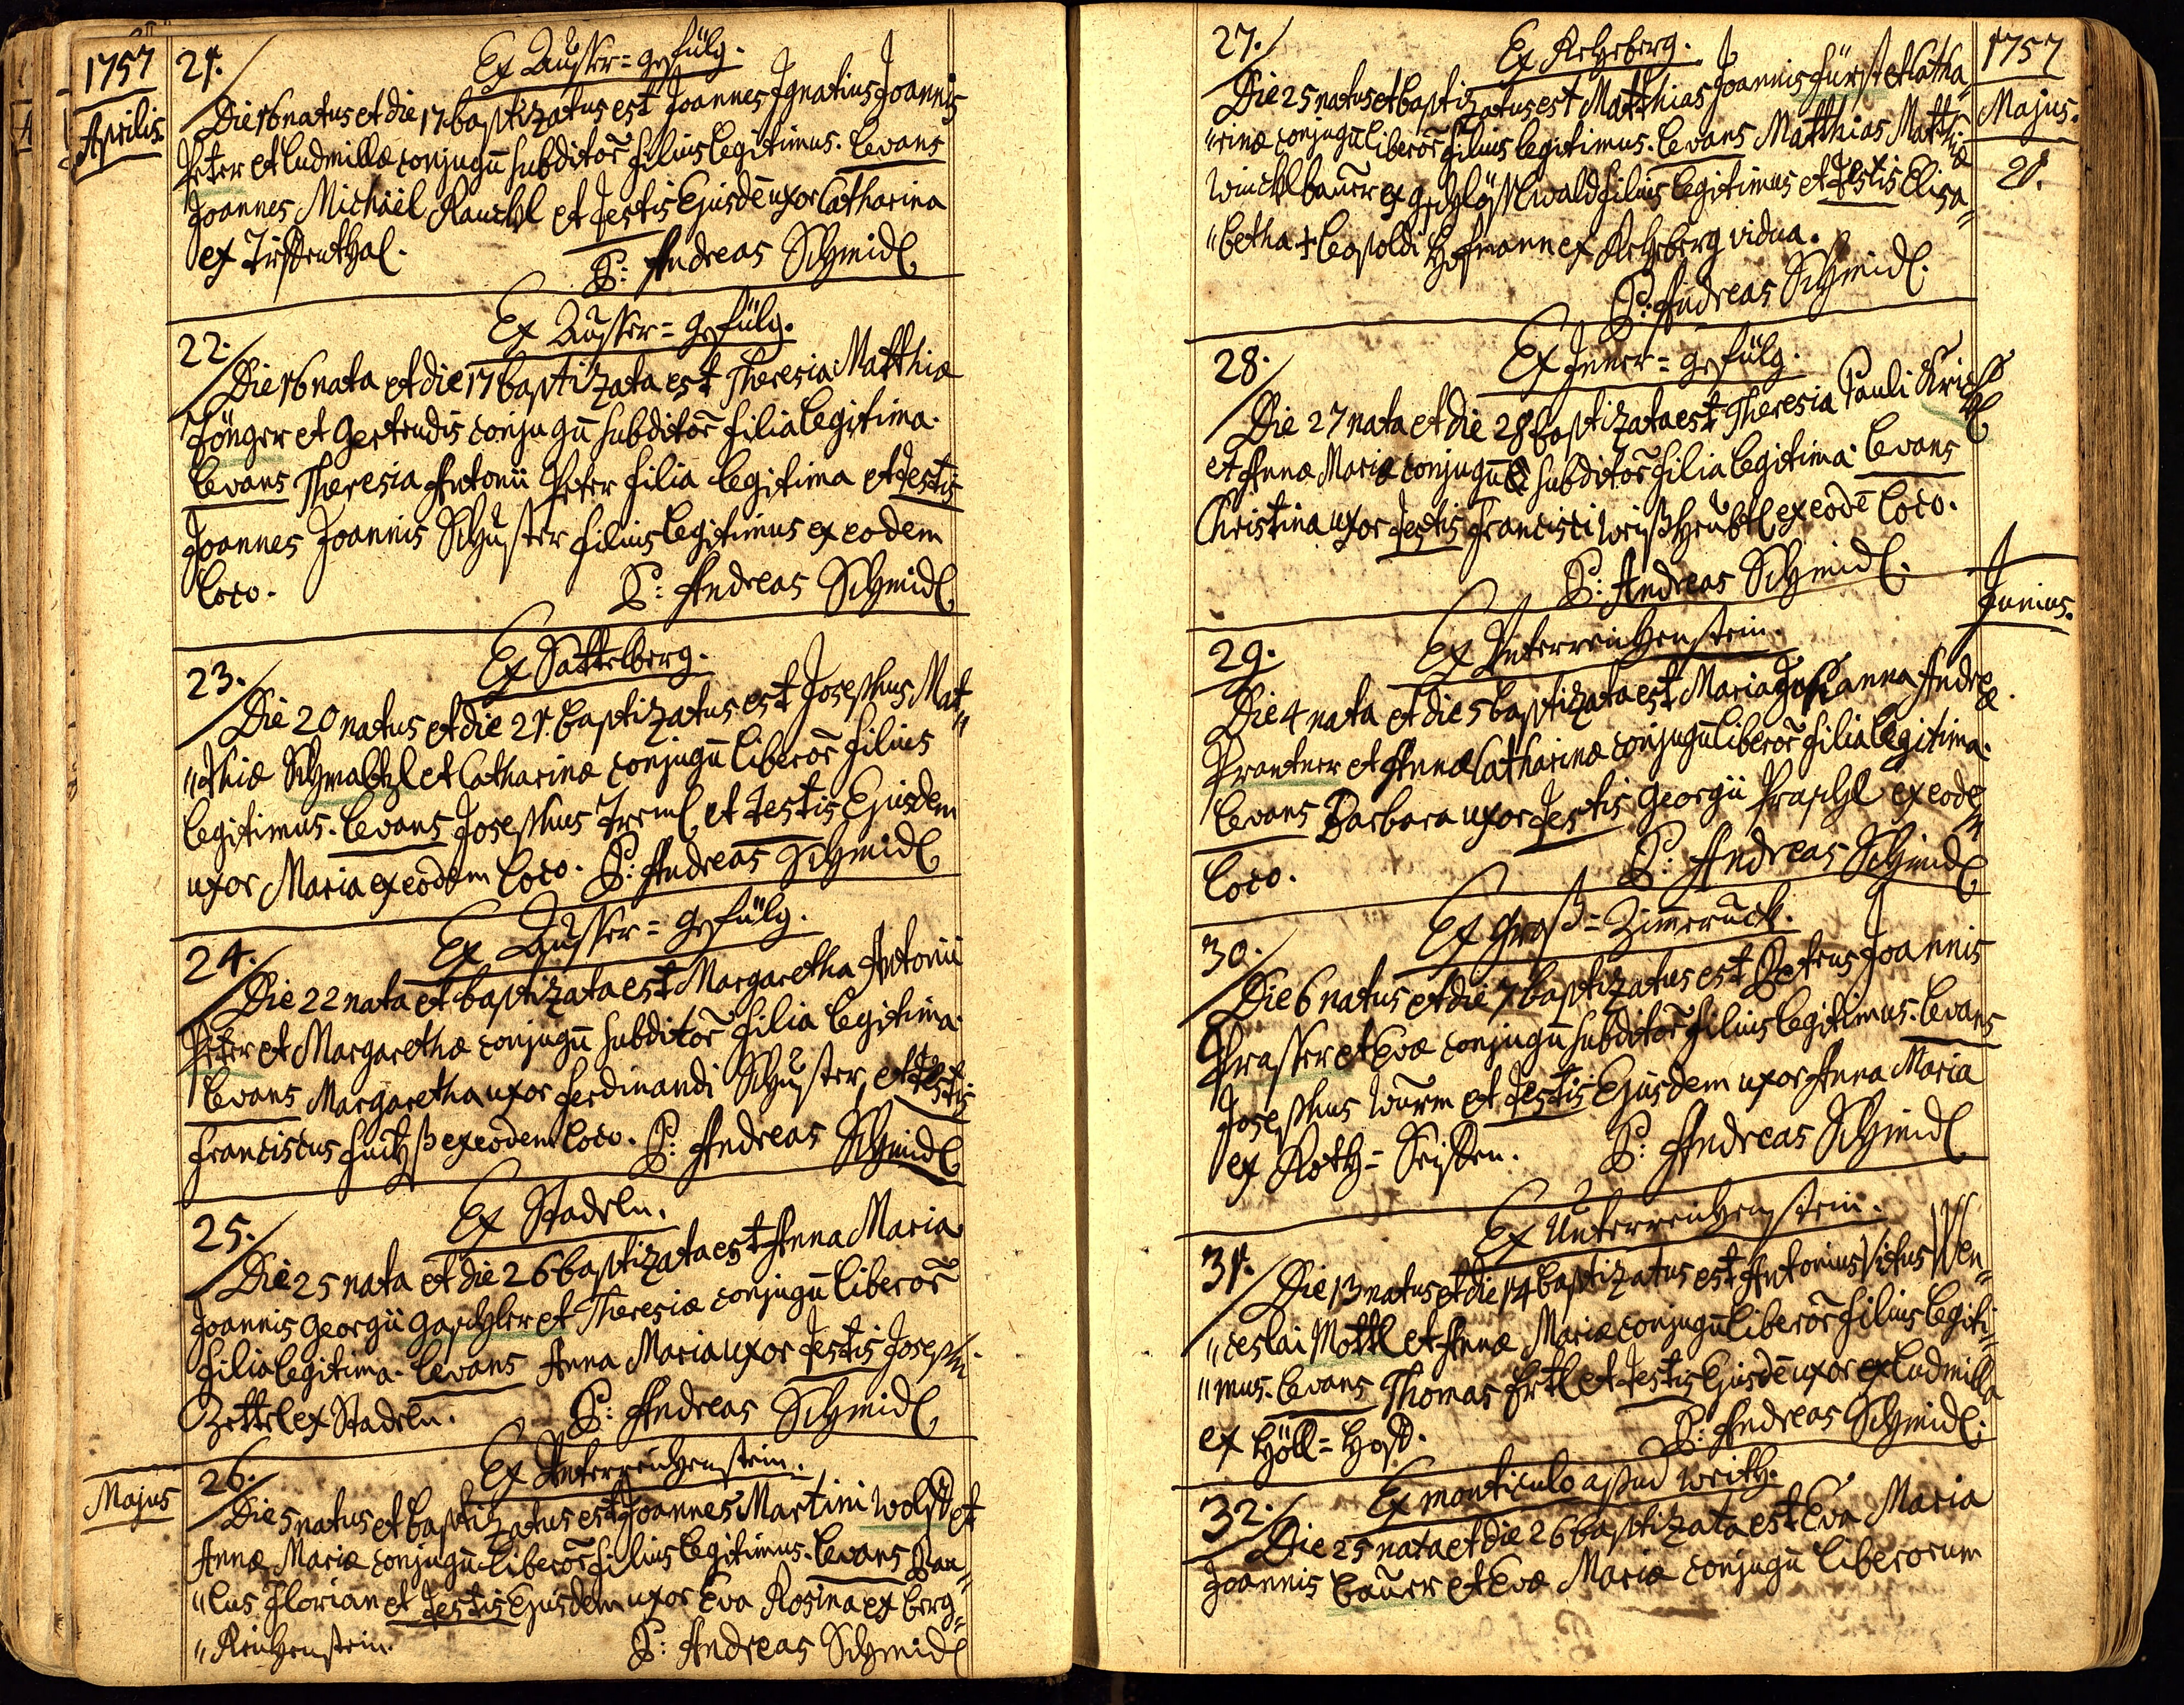 1757
Aprilis.
21.
Ex Ausser=gefülg.
Die 16 natus et die 17 baptizatus est Joannes Ignatius Joannis
Peter et Ludmillæ conjugū subditor̄ filius legitimus. Levans
Joannes Michaël Rauchl et Testis Ejusdē uxor Catharina
ex
P: Andreas Schmidl
22.
Ex Ausser=gefülg.
Die 16 nata et die 17 baptizata est Theresia Matthiæ
et Gertrudis conjugū subditor̄ filia legitima.
Levans Theresia Antonii Peter filia legitima et Testis
Joannes Joannis Schuster filius legitimus ex eodem
loco.
P: Andreas Schmidl
23.
Ex Sattelberg.
Die 20 natus et die 21. baptizatus est Josephus Mat„
„thiæ Schmaltzl et Catharinæ conjugū liberor̄ filius
legitimus. Levans Josephus et Testis Ejusdem
uxor Maria ex eodem loco. P: Andreas Schmidl
24.
Ex Ausser=gefülg.
Die 22 nata et baptizata est Margaretha Antonii
Peter et Margarethæ conjugū subditor̄ filia legitima.
Levans Margaretha uxor Ferdinandi Schuster, et Testis
Franciscus ex eodem loco. P: Andreas Schmidl
25.
Ex Stadeln.
Die 25 nata et die 26 baptizata est Anna Maria
Joannis Georgii Gaschler et Theresiæ conjugū liberor̄
filia legitima. Levans Anna Maria uxor Testis Josephi
Zettel ex Stadeln. P: Andreas Schmidl
Majus
26.
Ex Unterreichenstein.
Die 5 natus et baptizatus est Joannes Martini Wolf et
Annæ Mariæ conjugū liberor̄ filius legitimus. Levans Pau„
„lus Florian et Testis Ejusdem uxor Eva Rosina ex Berg„
„Reichenstein. P: Andreas Schmidl
1757
Majus.
27.
Ex
Die 25 natus et baptizatus est Matthias Joannis Fürst et Catha„
„rinæ conjugū liberor̄ filius legitimus. Levans Matthias Matthiæ
Wincklbauer ex filius legitimus et Testis Elisa„
„betha + Leopoldi Hofmann ex vidua.
P: Andreas Schmidl.
28.
Ex Inner=gefülg.
Die 27 nata et die 28 baptizata est Theresia Pauli
et Annæ Mariæ conjugū subditor̄ filia legitima. Levans
Christina uxor Testis Francisci ex eodē loco.
P: Andreas Schmidl.
Junius.
29.
Ex Unterreichenstein.
Die 4 nata et die 5 baptizata est Maria Anna Andreæ
Prantner et Annæ Catharinæ conjugū liberor̄ filia legitima.
Levans Barbara uxor Testis Georgii ex eodem
loco.
P: Andreas Schmidl
30.
Ex Groß=Zimmeruck.
Die 6 natus et die 7 baptizatus est Petrus Joannis
Prasser et Evæ conjugū subditor̄ filius legitimus. Levans
Josephus Wurm et Testis Ejusdem uxor Anna Maria
ex Roth=Seissen. P: Andreas Schmidl
31.
Ex Unterreichenstein.
Die 13 natus et die 14 baptizatus est Antonius Vitus Wen„
„ceslai Mottl et Annæ Mariæ conjugū liberor̄ filius legiti„
„mus. Levans Thomas Ertl et Testis Ejusdē uxor ex Ludmilla
ex Höll=Hof.
P: Andreas Schmidl.
32.
Ex monticulo apud
Die 25 nata et die 26 baptizata est Eva Maria
Joannis Bauer et Evæ Mariæ conjugū liberorum